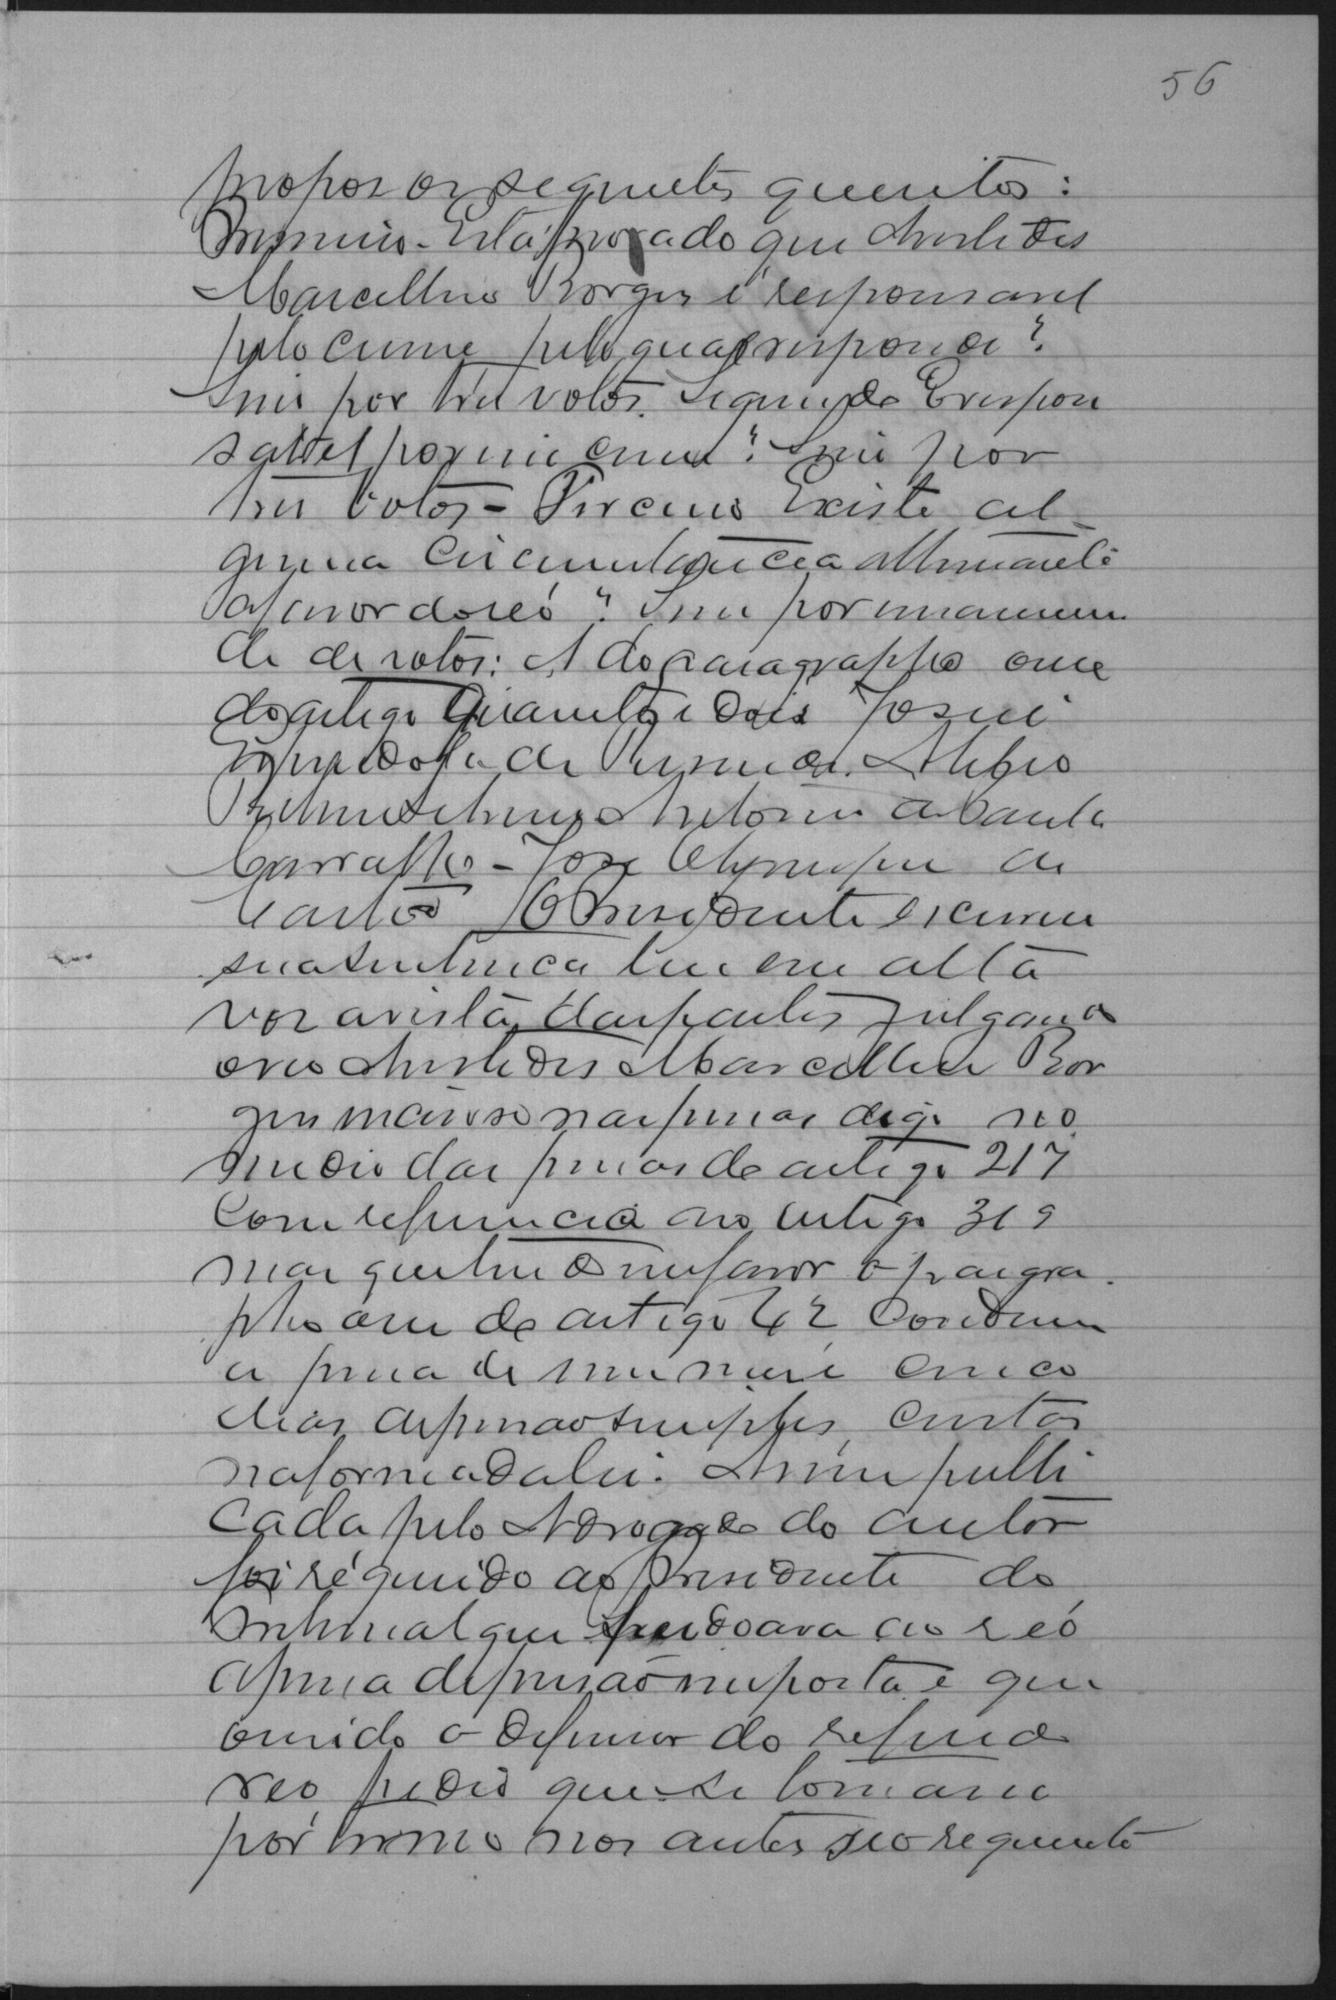 56
propoz os seguintes quesitos:
Primeiro - Está provado que Aristides
Marcellino Borges é responsavel
pelo crime pelo qual responde?
Sim por tres votos. Segundo É respon
savel por um crime? Sim por
tres votos - Terceiro Existe al
guma circumstancia attenuante
a favor do reó? Sim por unanimi
de de votos: A do paragrapho onze
do artigo Quarenta e dois José
de Alipio
Antonio de Paula
Carvalho - José Olympio de
Castro O Presidente escreveu
sua sentença leu em alta
voz a vista das partes julgando
o reo Aristides Marcellino Bor
ges incurso nas penas digo no
medio das penas do artigo 217
Com referencia ao artigo 319
mas que tendo em favor o paragra
pho onze do artigo 42 Condemn
a pena de um mez e cinco
dias de prisão simples, custas
na forma da lei. Assim publi
cada pelo Advogado do autor
foi requerido ao Presidente do
Tribunal que perdoava ao reó
a pena de prisão imposta e que
ouvido o defensor do referido
reo pediu que se tomasse
por termo nos autos seo requerito